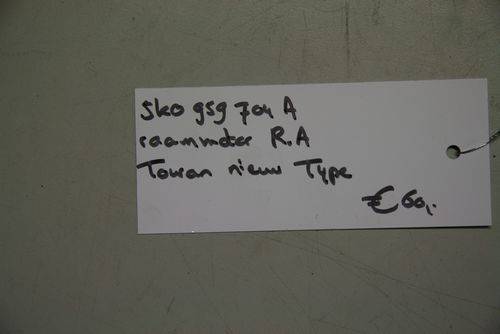 5k0 959 704 A
raammotor R.A
Touran nieuw Type
€ 60,-